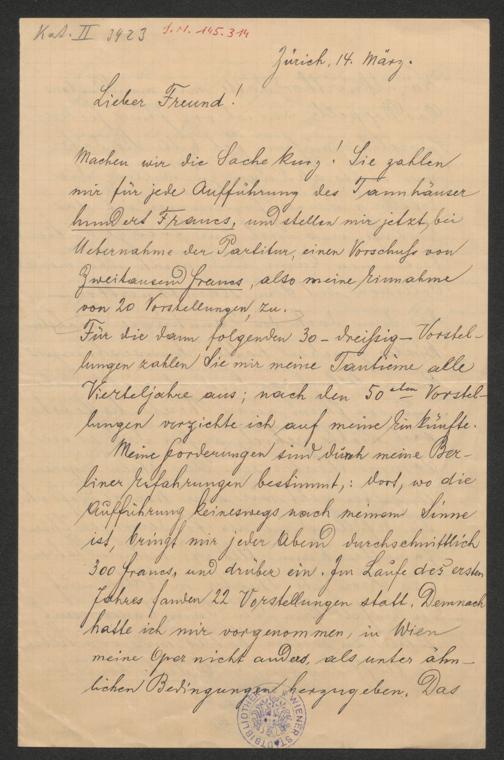 Kat. II 3423 J.N. 145.314
Zürich, 14. März.
Lieber Freund!
Machen wir die Sache kurz! Sie zahlen
mir für jede Aufführung des Tannhäuser
hundert Francs, und stellen mir jetzt, bei
Uebernahme der Partitur, einen Vorschuss von
Zweitausend francs, also meine Einnahme
von 20 Vorstellungen zu.
Für die dann folgenden 30 - dreißig - Vorstel-
lungen zahlen Sie mir meine Tantième alle
Vierteljahre aus; nach den 50sten Vorstel-
lungen verzichte ich auf meine Einkünfte.
Meine Forderungen sind durch meine Ber-
liner Erfahrungen bestimmt,: dort, wo die
Aufführung keineswegs nach meinem Sinne
ist, bringt mir jeder Abend durchschnittlich
300 francs, und drüber ein. Im Laufe des ersten
Jahres fanden 22 Vorstellungen statt. Demnach
hatte ich mir vorgenommen, in Wien
meine Oper nicht anders, als unter ähn-
lichen Bedingungen herzugeben. Das
WIENER STADTBIBLIOTHEK